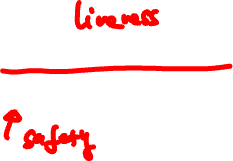 liveness
↑ safety